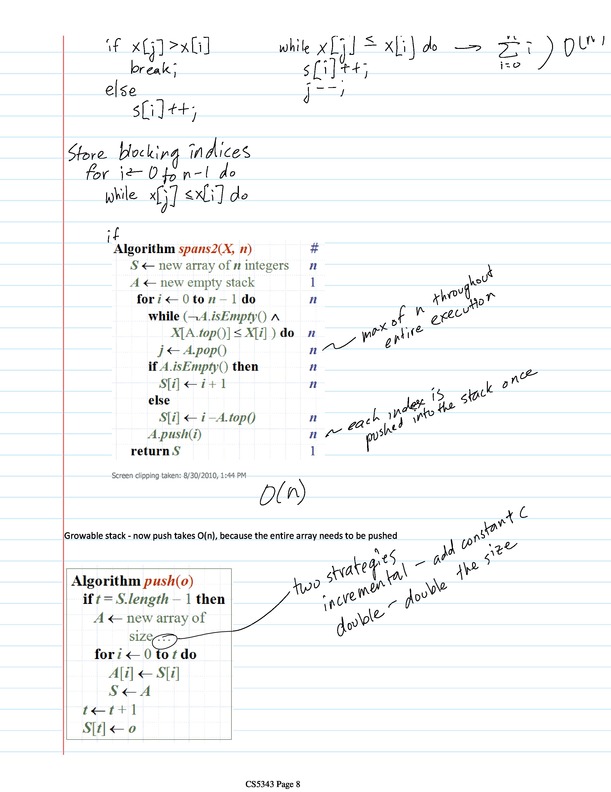 if x[j] > x[i]
break;
else
s[i]++;
while x[j] ≤ x[i] do → n Σ i=0 i ) O(n
s[i]++;
j--;
Store blocking indices
for i ← 0 to n-1 do
while x[j] ≤ x[i] do
if
Algorithm spans2(X, n) #
S ← new array of n integers n
A ← new empty stack 1
for i ← 0 to n − 1 do n
while (¬A.isEmpty() ∧
X[A.top()] ≤ X[i] ) do n
j ← A.pop() n
if A.isEmpty() then n
S[i] ← i + 1 n
else
S[i] ← i −A.top() n
A.push(i) n
return S 1
max of n throughout
entire execution
each index is
pushed into the stack once
Screen clipping taken: 8/30/2010, 1:44 PM
O(n)
Growable stack - now push takes O(n), because the entire array needs to be pushed
Algorithm push(o)
if t = S.length − 1 then
A ← new array of
size …
for i ← 0 to t do
A[i] ← S[i]
S ← A
t ← t + 1
S[t] ← o
two strategies
incremental - add constant c
double - double the size
CS5343 Page 8